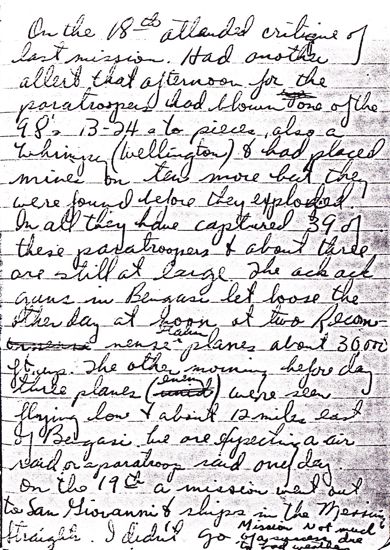 On the 18th attended critique of
last mission. Had another
allert that afternoon for the
paratroopers had blown one of the
98's B-24s to pieces, also a
Whimpy (Wellington) & had placed
mines on ten more but they
were found before they exploded.
In all they have captured 39 of
these paratroopers & about three
are still at large. The ack ack
guns in Bengasi let loose the
other day at noon at two Recon-
nensetain planes about 30,000
ft. up. The other morning before day
three planes (enemy) were seen
flying low & about 12 miles east
of Bengasi. We are expecting a air
raid or a paratroop raid one day.
On the 19th a mission went out
to San Giovanni & ships in the Messina
Straights. I didn't go
Mission Not much
of a success due
to weather